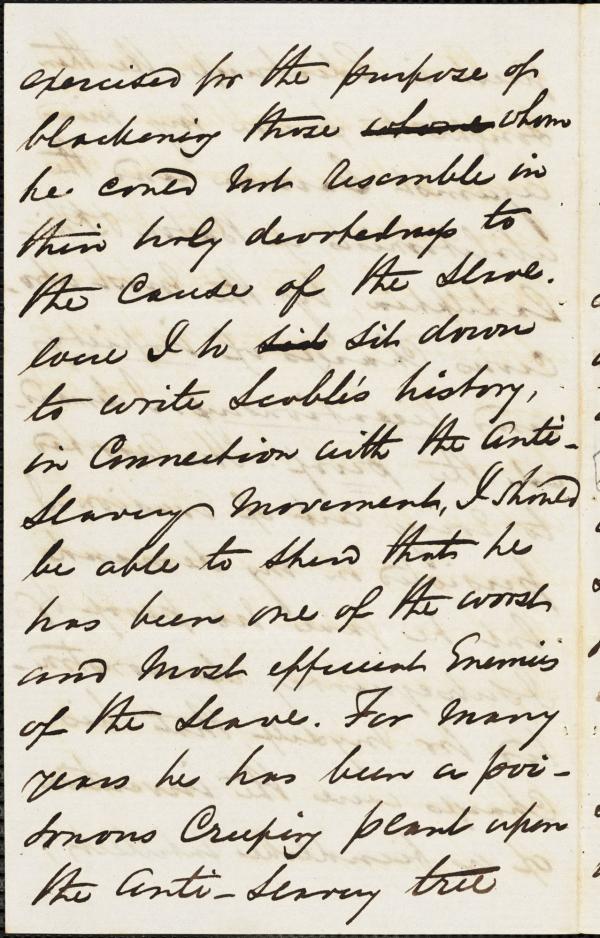 exercised for the purpose of
blackening those whome whom
he could not resemble in
their holy devotedness to
the cause of the Slave.
were I to sid sit down
to write Scoble's history,
in connection with the Anti-
Slavery Movement, I should
be able to shew that he
has been one of the worst
and most efficient Enemies
of the Slave. For many
years he has been a poi-
sonous creeping plant upon
the Anti-Slavery tree